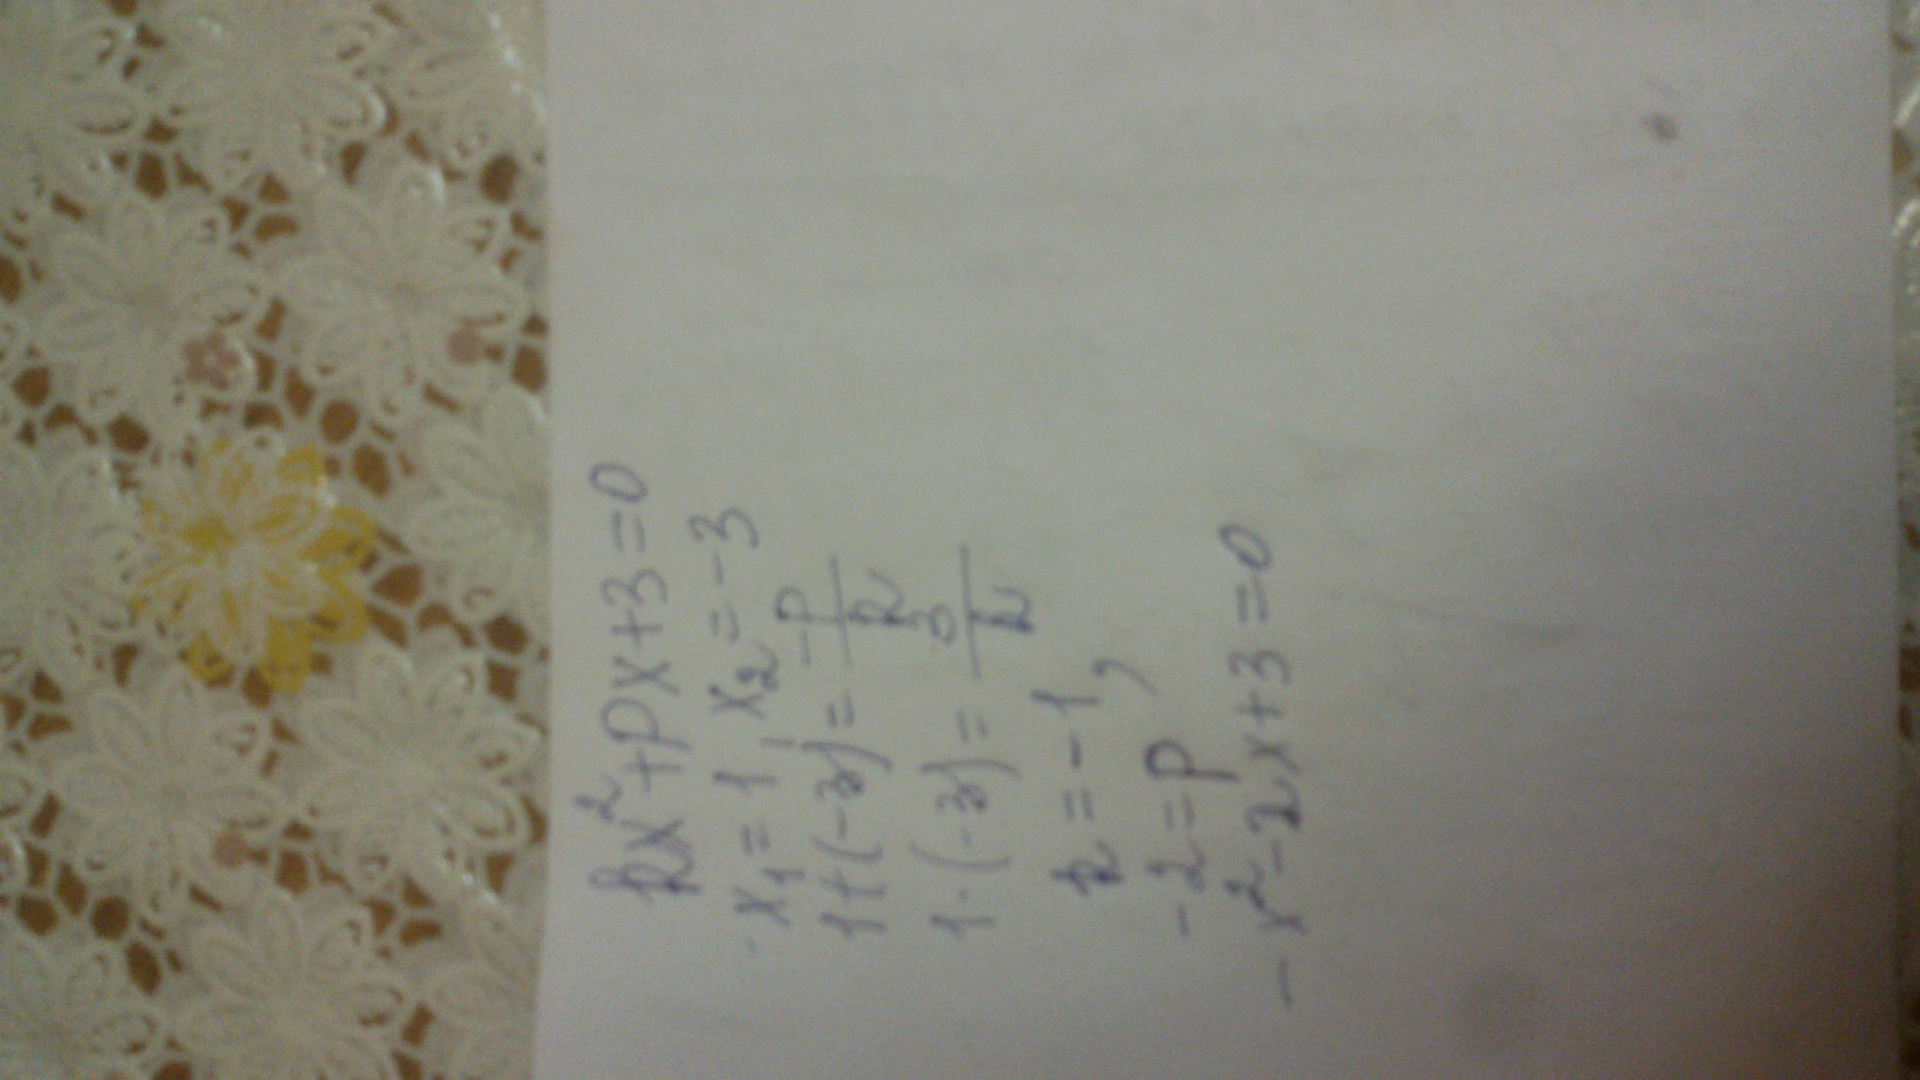 kx²+px+3=0
x₁=1, x₂=-3
1+(-3)=-p/k
1·(-3)=3/k
k=-1,
-2=p
-x²-2x+3=0